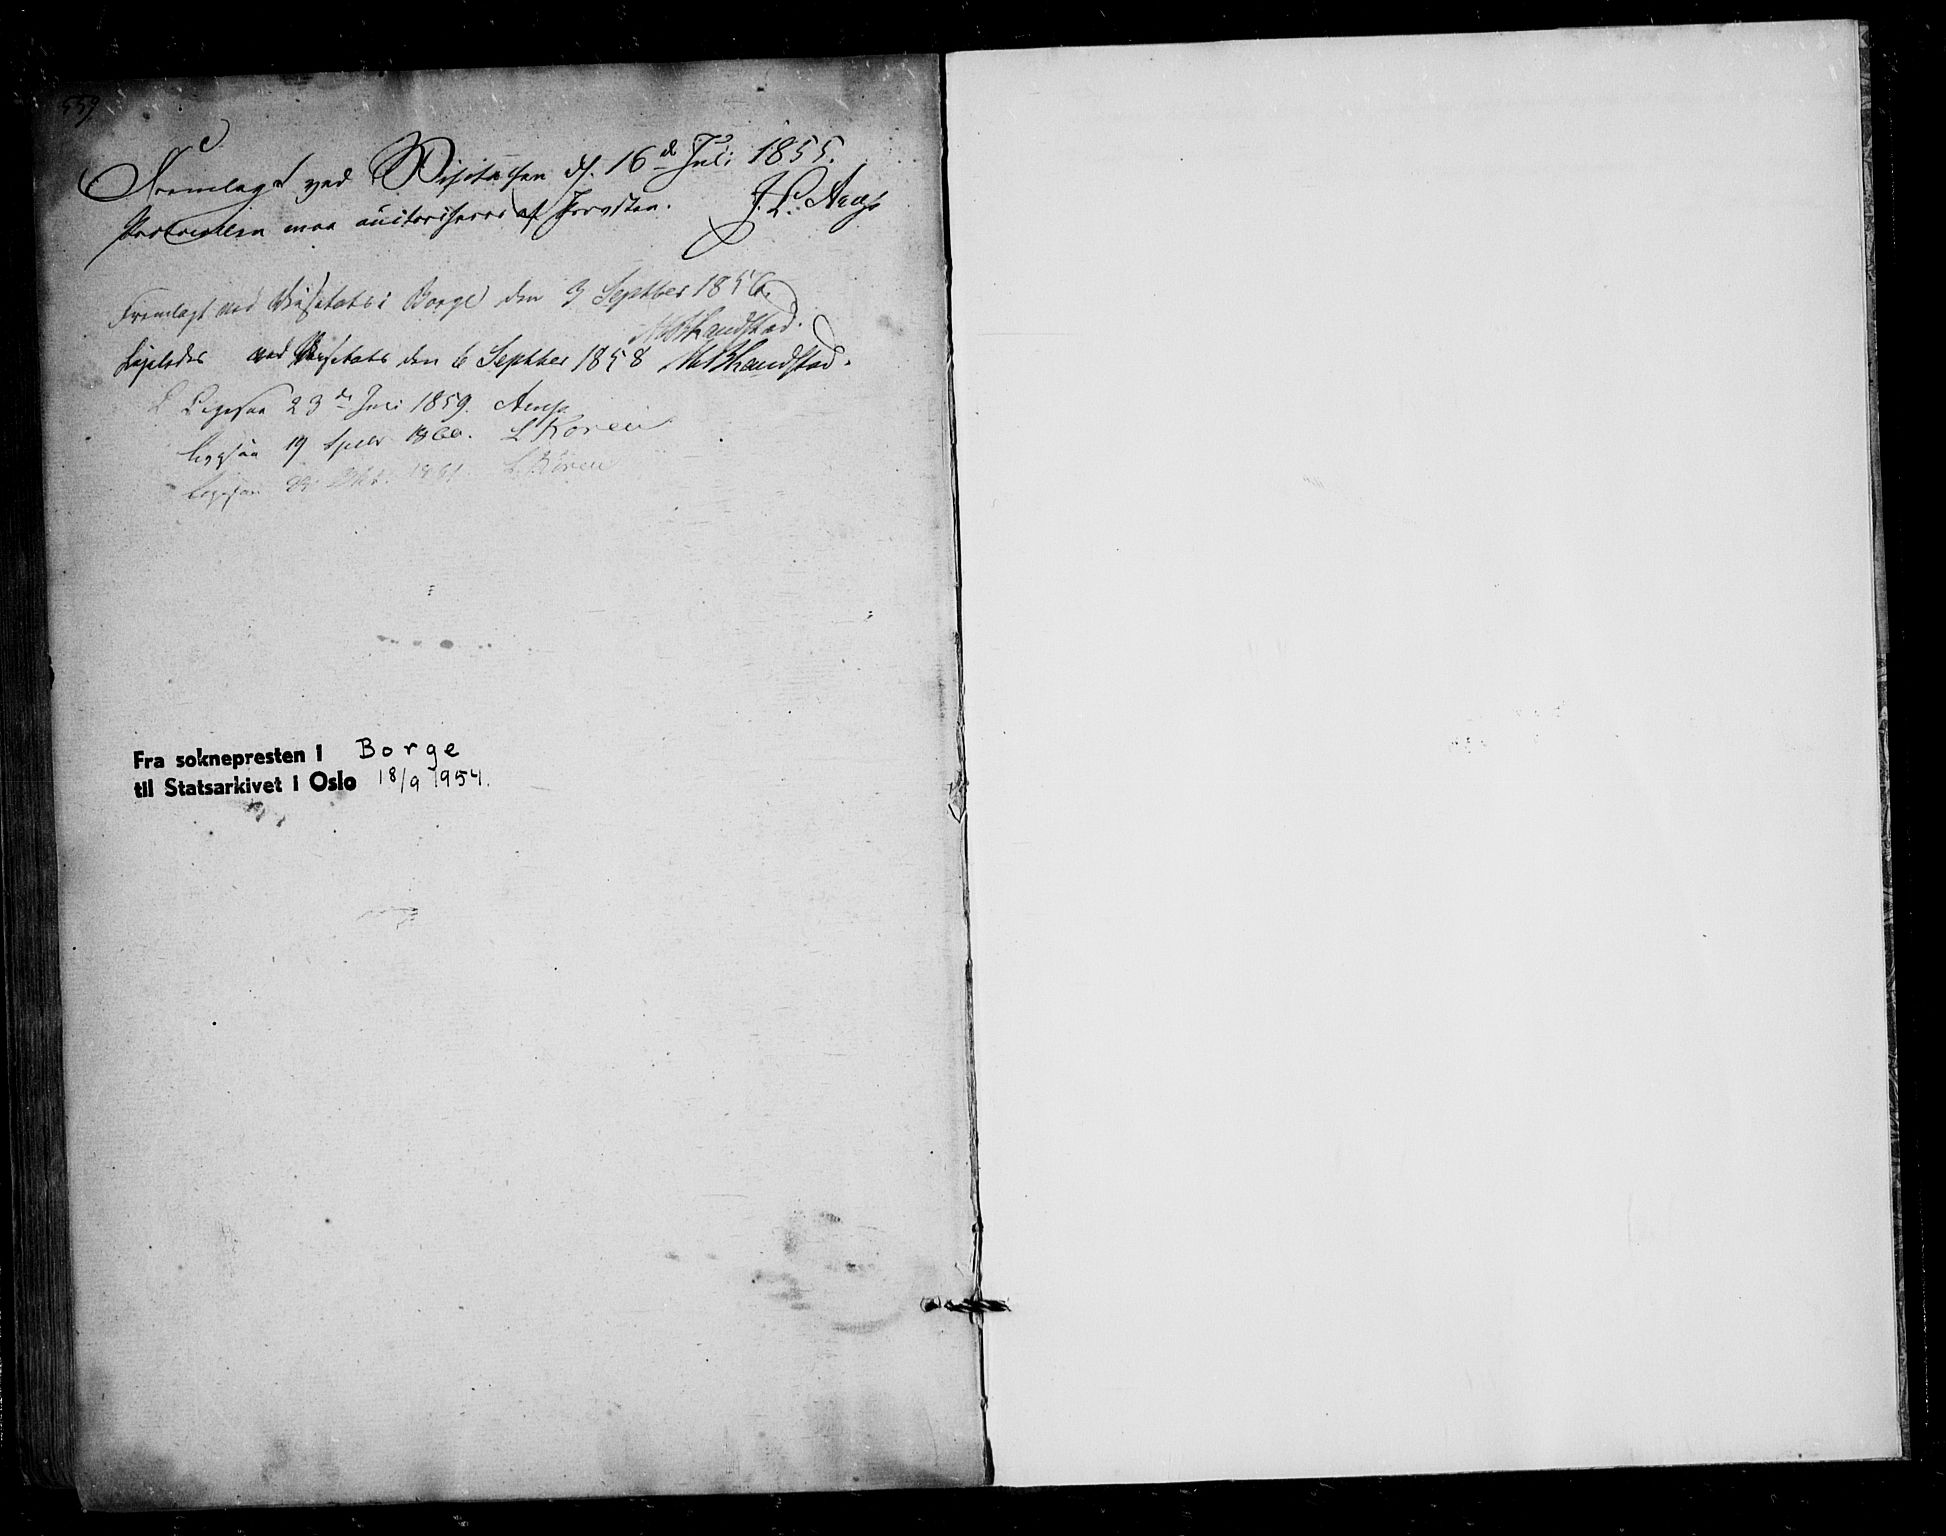 559
Fremlagt ved Visitatsen d. 16de Juli 1855.
Protocollen maa auctoriseres af Provsten. J. L. Arup
Fremlagt ved Visitats i Borge den 3 Septber 1856.
MBLandstad.
Ligeledes ved Visitats den 6 Septber 1858 MBLandstad.
Ligesaa 23de Juli 1859. Arup
Ligesaa 19 1860. L Koren
Ligesaa 1861. L. Koren
Fra soknepresten i Borge
til Statsarkivet i Oslo 18/9 1954.